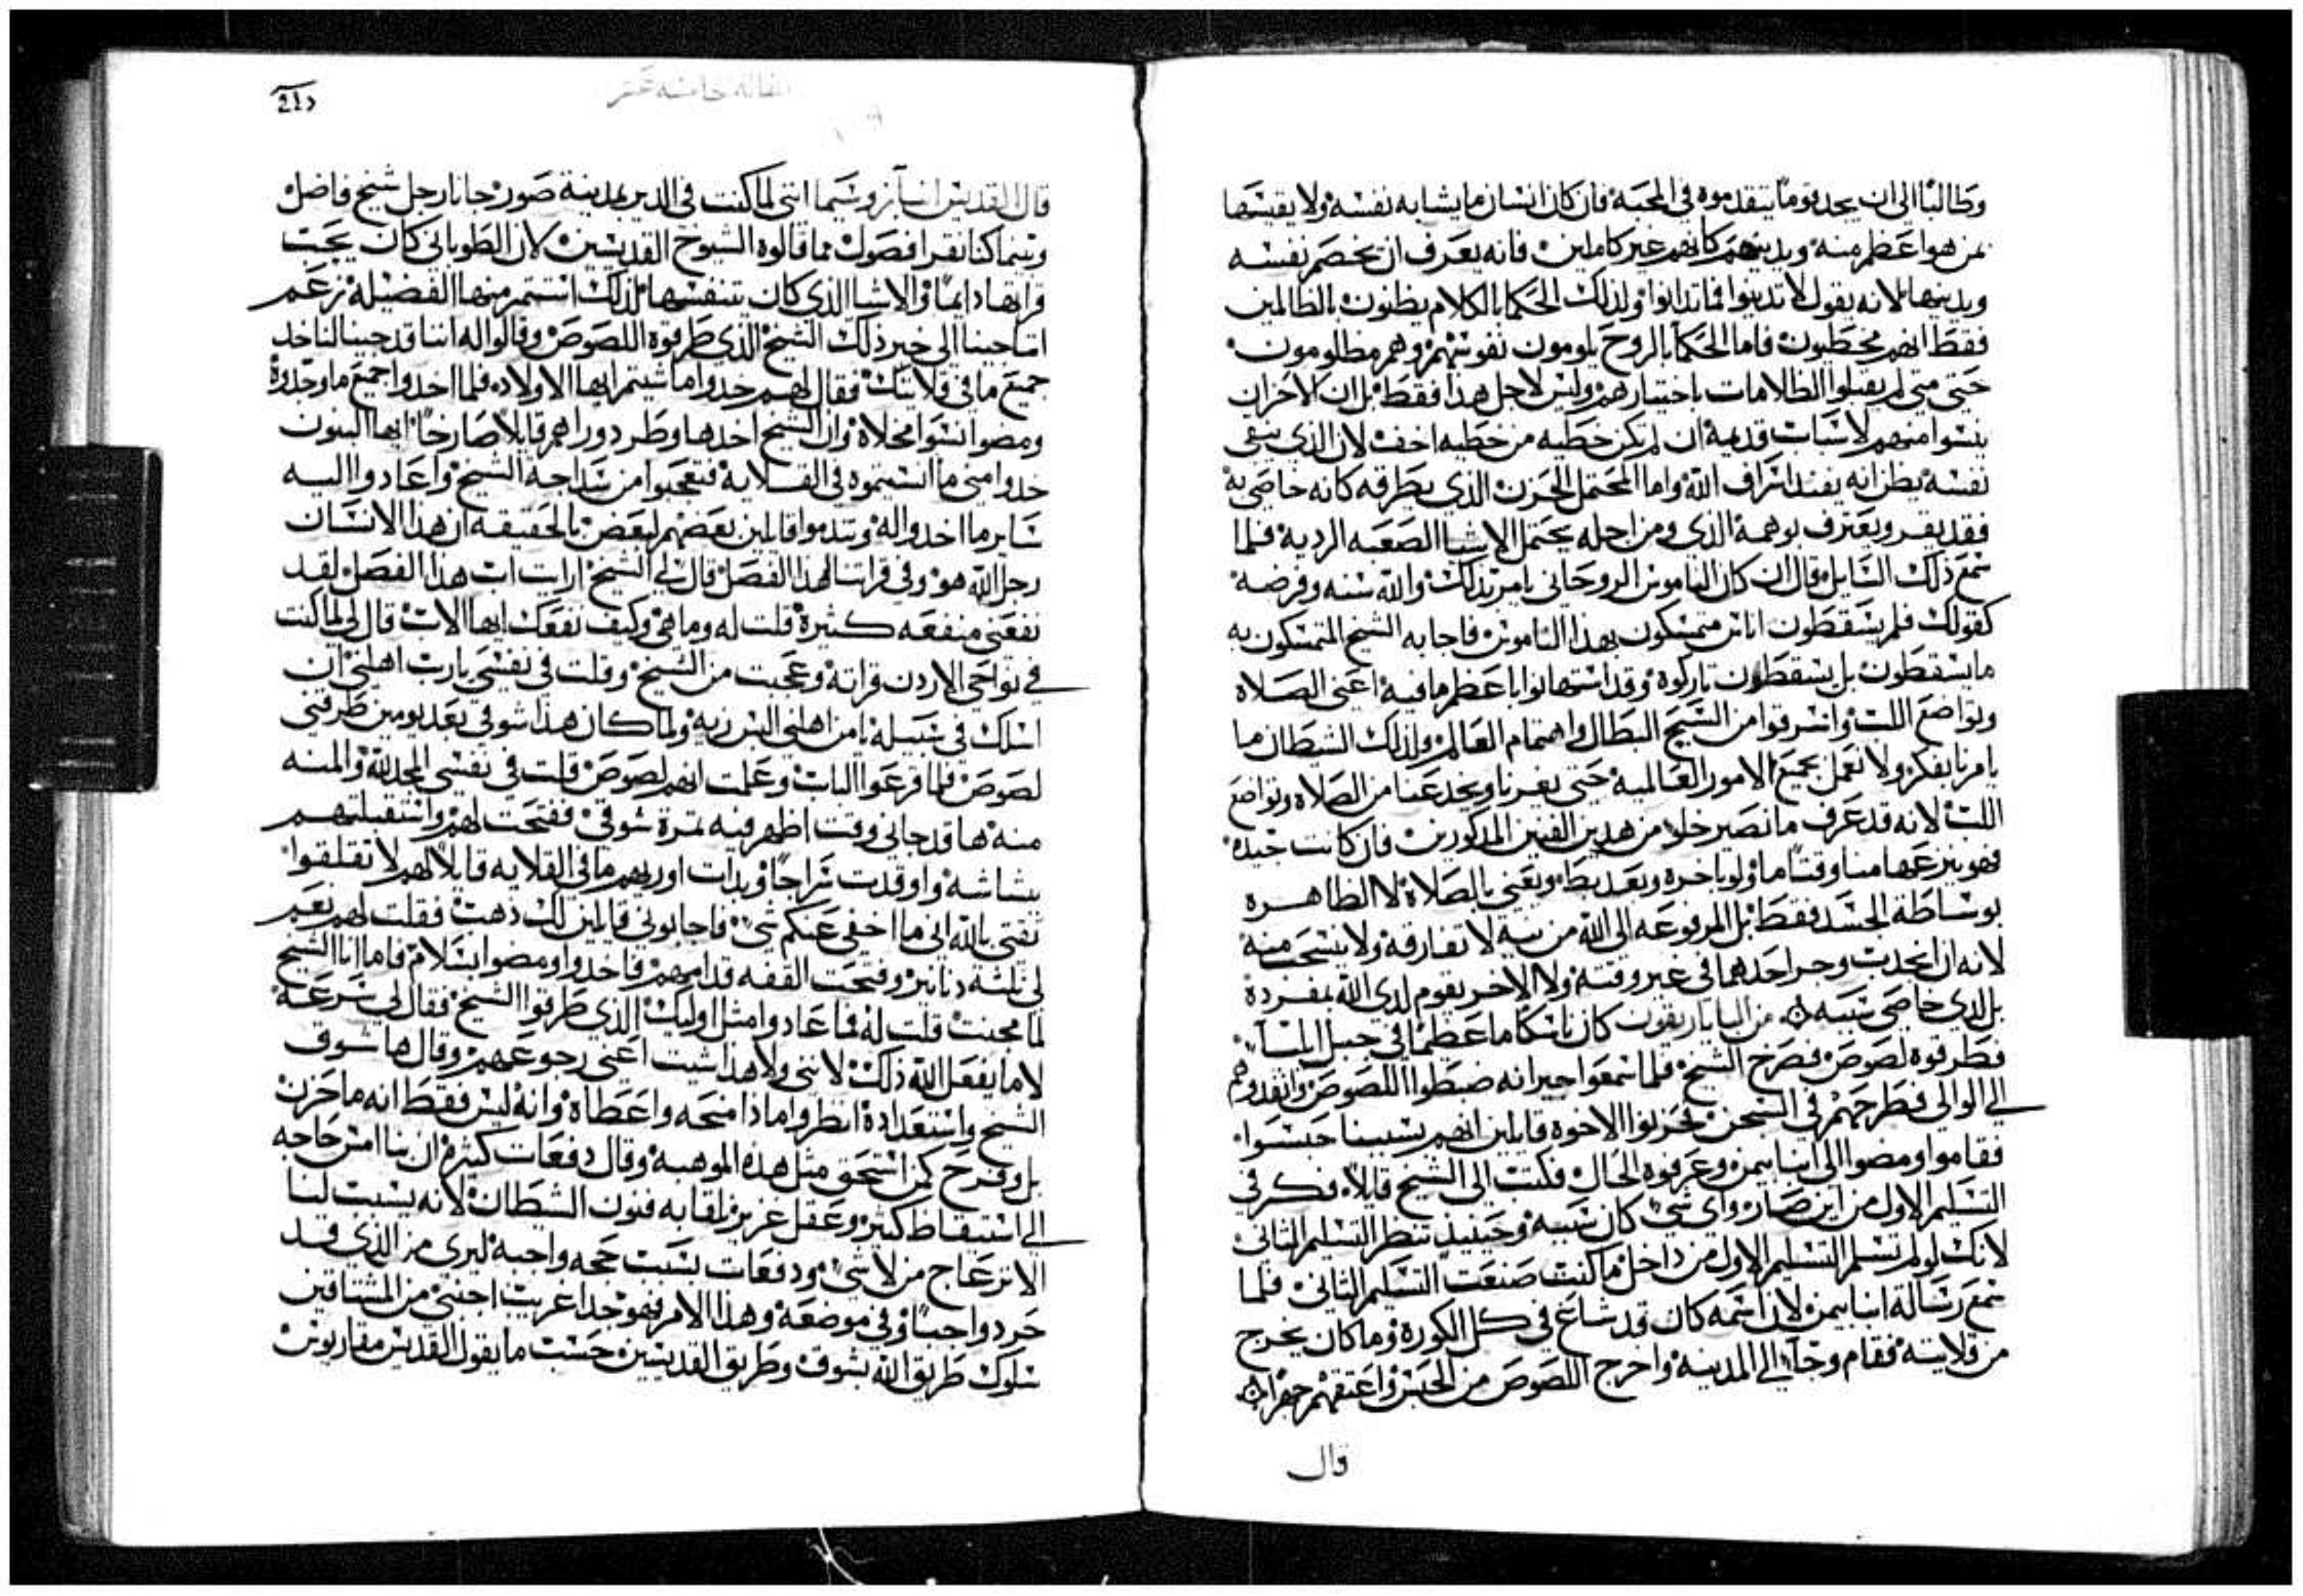 وطالبًا الى ان يجد قومًا يتقدموه فى المحبه فان كان انسان ما يشابه نفسه ولا يقيسها
بمن هو اعظم منه ويدينهم كانهم غير كاملين فانه يعرف ان يخصم نفسه
ويدينها لانه يقول لا تدينوا فما تدانوا ولذلك الحكما بالكلام يظنون بالظالمين
فقط انهم مخطيون فاما الحكما بالروح يلومون نفوسهم وهم مظلومون
حتى متى لم يقبلوا الظلامات باختيارهم وليس لاجل هذا فقط بل ان الاحزان
ينسوا منهم لاسباب قديمة ان لم تكن خطيه من خطيه اخف لان الذى ينقى
نفسه يظن انه يفند اشراف الله واما المحتمل الحزن الذى يطرقه كانه خاصى به
فقد يقر ويعترف بوهمه الذى ومن اجله يحتمل الاشيا الصعبه الرديه فلما
سمع ذلك السايل قال ان كان الناموس الروحانى يامر بذلك والله سنه وفرضه
كقولك فلم يسقطون اناس متمسكون بهذا الناموس فاجابه الشيخ المتمسكون به
ما يسقطون بل يسقطون تاركوه وقد استهانوا باعظم ما فيه اعنى الصلاه
وتواضع اللب وانسرقوا من السبح البطال واهتمام العالم ولذلك الشيطان ما
يامرنا بفكر ولا نعمل بجميع الامور العالميه حتى يغرنا ويخدعنا من الصلاه وتواضع
اللب لانه قد عرف ما نصير خلوا من هدين الفنين المدكورين فان كانت جيده
فهو ينزعها منا وقتًا ما ولو باخره وبعد بطء ويعنى بالصلاة لا الظاهره
بوساطة الجسد فقط بل المرفوعه الى الله من نيه لا تفارقه ولا تسحب منه
لانه ان انجدبت وجر احدهما فى غير وقته ولا الاخر يقوم لدى الله بمفرده
بل لدى خاصى سببه من الباباريقون كان ناسكًا ما عظيمًا فى جبل البلسا
فطرقوه لصوص فصرخ الشيخ فلما سمعوا جيرانه ضبطوا اللصوص وانفدوهم
الى الوالى فطرحهم فى السجن فحزنوا الاخوه قايلين انهم بسببنا حبسوا
فقاموا ومضوا الى انبا بيمن وعرفوه الحال فكتب الى الشيخ قايلا فكر فى
التسليم الاول من اين صار واى شى كان سببه وحينيذ تنظر التسليم الثانى
لانك لو لم تسلم التسليم الاول من داخل ما كنت صنعت التسليم الثانى فلما
سمع رسالة انبا بيمن لان اسمه كان قد شاع فى كل الكوره وما كان يخرج
من قلايته فقام وجا الى المدينه واخرج اللصوص من الحبس واعتقهم جهرا
قال
المقاله خامسه عشر
قال القديس انبا زوسيما اننى لما كنت فى الدير بمدينة صور جانا رجل شيخ فاضل
وبينما كنا نقرا فصول مما قالوه الشيوخ القديسين لان الطوبانى كان يحب
قراتها دايمًا والاشيا الذى كان يتنفسها لذلك استتمر منها الفضيلة زعم
اننا جينا الى خبر ذلك الشيخ الذى طرقوه اللصوص وقالوا له اننا قد جينا لناخد
جميع ما فى قلايتك فقال لهم خدوا ما شيتم ايها الاولاد فلما اخدوا جميع ما وجدوة
ومضوا نسوا مخلاة وان الشيخ اخدها وطرد وراهم قايلاً صارخًا ايها البنون
خدوا منى ما انسيتموه فى القلايه فتعجبوا من سداجة الشيخ واعادوا اليه
ساير ما اخدوا له وتندموا قايلين بعضهم لبعض بالحقيقه ان هذا الانسان
رجل الله هو وفى قراتنا لهذا الفصل قال لى الشيخ ارايت اب هذا الفصل لقد
نفعنى منفعه كثيرة قلت له وما هى وكيف نفعك ايها الاب قال لى لما كنت
فى نواحى الاردن قراته وعجبت من الشيخ وقلت فى نفسى يارب اهلنى ان
اسلك فى سبيله يا من اهلنى البس زيه ولما كان هذا شوقى بعد يومين طرقنى
لصوص فلما قرعوا الباب وعلمت انهم لصوص قلت فى نفسى المجد لله والمنه
منه ها قد جانى وقت اظهر فيه ثمرة شوقى ففتحت لهم واستقبلتهم
ببشاشه واوقدت سراجًا وبدات اوريهم ما فى القلايه قايلاً لهم لا تقلقوا
ثقتى بالله انى ما اخفى عنكم شى فاجابونى قايلين لك ذهب فقلت لهم نعم
لى ثلثه دنانير وفتحت القفه قدامهم فاخدوا ومضوا بسلام فاما انا الشيخ
لما مجنت قلت له فما عادوا مثل اوليك الذى طرقوا الشيخ فقال لى سرعة
لا ما يفعل الله ذلك لاننى ولا هذا شيت اعنى رجوعهم وقال ها شوق
الشيخ واستعداده انظروا ماذا منحه واعطاه وانه ليس فقط انه ما حزن
بل وفرح كمن استحق مثل هذه الموهبه وقال دفعات كثيره ان بنا امس حاجه
الى استيقاظ كثير وعقل غريز لقابه فنون الشيطان لانه يسبب لنا
الانزعاج من لا شى ودفعات بسبب حجه واجبه ليرى من الذى قد
حرد واجبًا وفى موضعه وهذا الامر فهو جدا غريب اجنبى من المشتاقين
سلوك طريق الله بشوق وطريق القديسين حسب ما يقول القديس مقاريوس